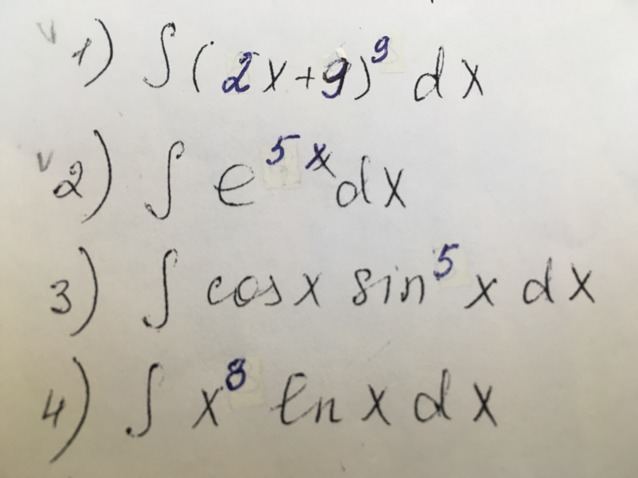 1) ∫(2x+9)⁹ dx
2) ∫ e⁵ˣdx
3) ∫ cosx sin⁵x dx
4) ∫ x⁸ ln x dx